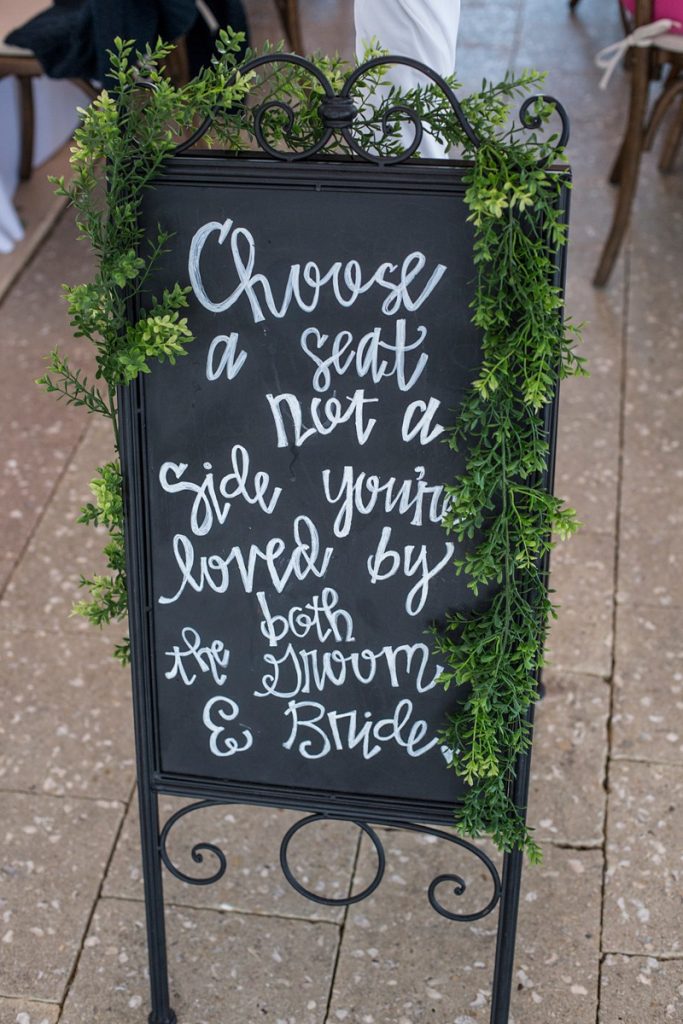 Choose
a seat
not a
side you're
loved by
both
the groom
& Bride.